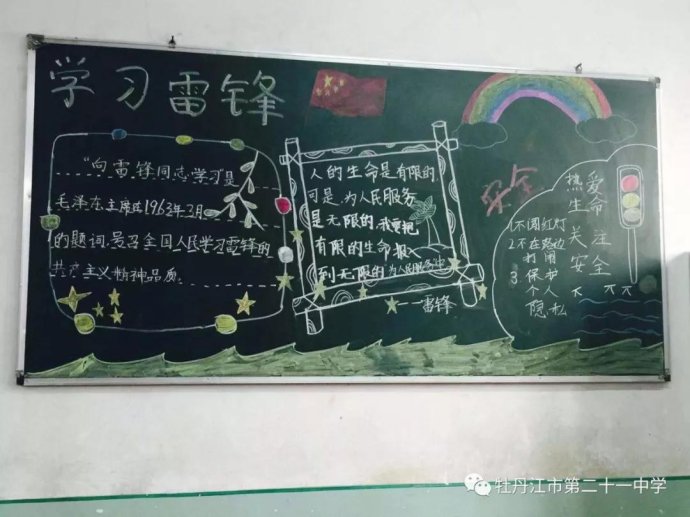 学习雷锋
"向雷锋同志学习"是
毛泽东主席在1963年3月
的题词,号召全国人民学习雷锋的
共产主义精神品质。
人的生命是有限的,
可是,为人民服务
是无限的,我要把
有限的生命投入
到无限的为人民服务中
——雷锋
安全
热爱
生命
关注
安全
1.不闯红灯
2.不在路边
打闹
3.保护
个人
隐私
牡丹江市第二十一中学